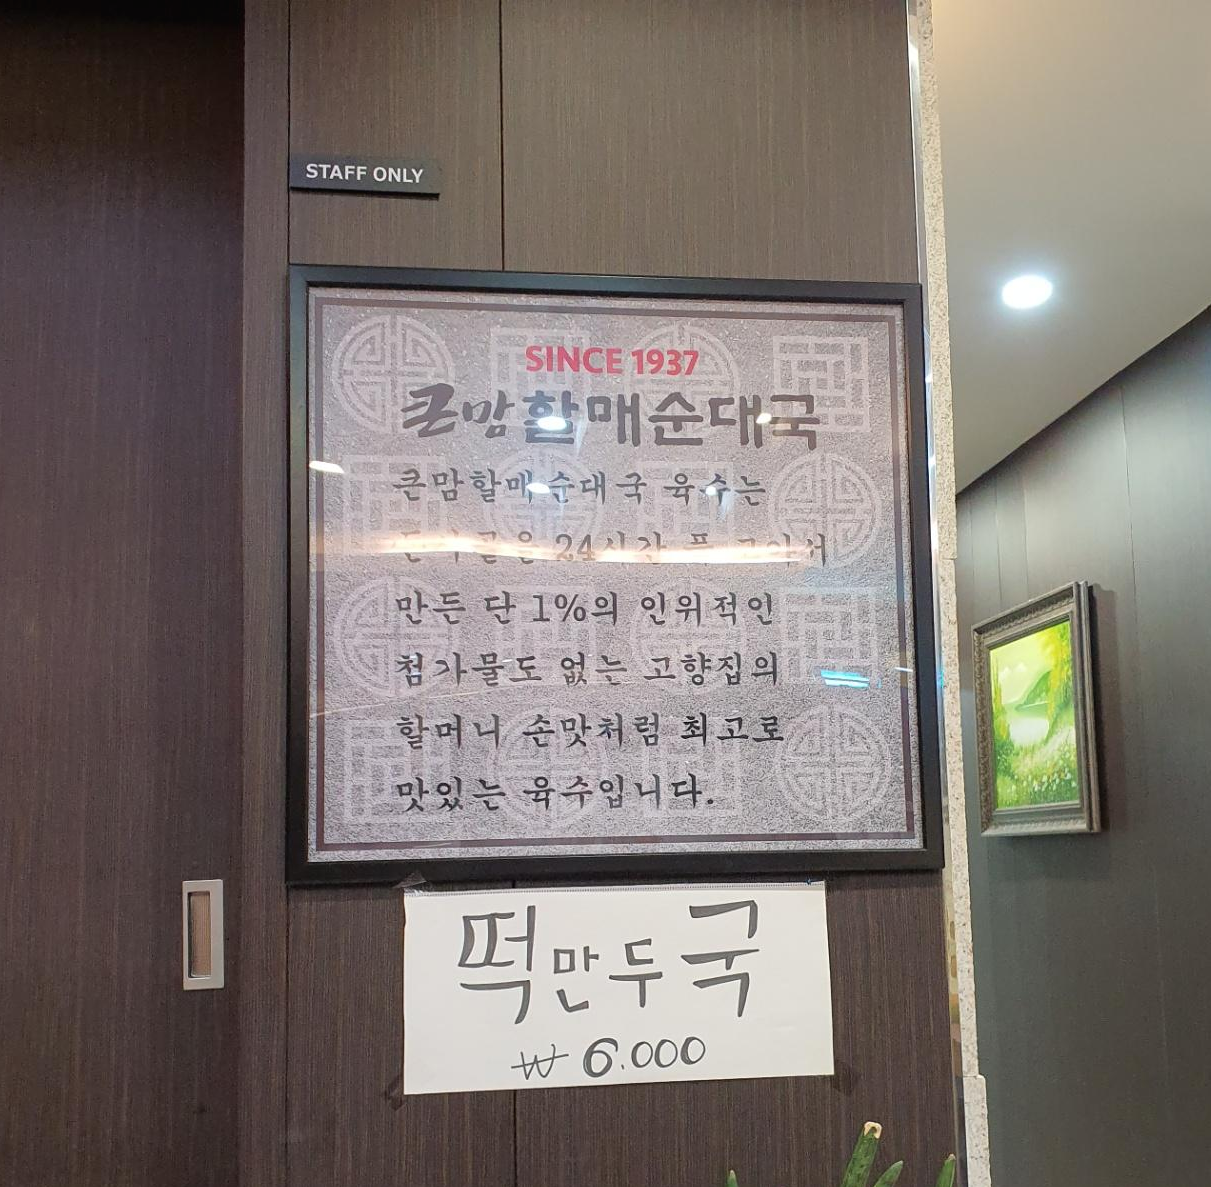 STAFF ONLY
SINCE 1937
큰맘할매순대국
큰맘할매순대국 육수는
24시간 푹 고아서
만든 단 1%의 인위적인
첨가물도 없는 고향집의
할머니 손맛처럼 최고로
맛있는 육수입니다.
떡만두국
₩ 6.000